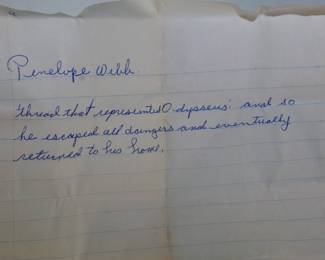 Penelope Webb.
thread that represented Odysseus' and so
he escaped all dangers and eventually
returned to his home.